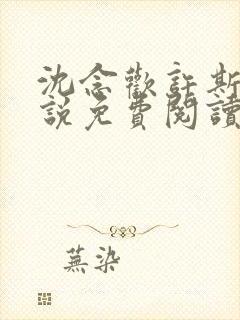 沈念歡許斯
說免費閱讀
蕪染